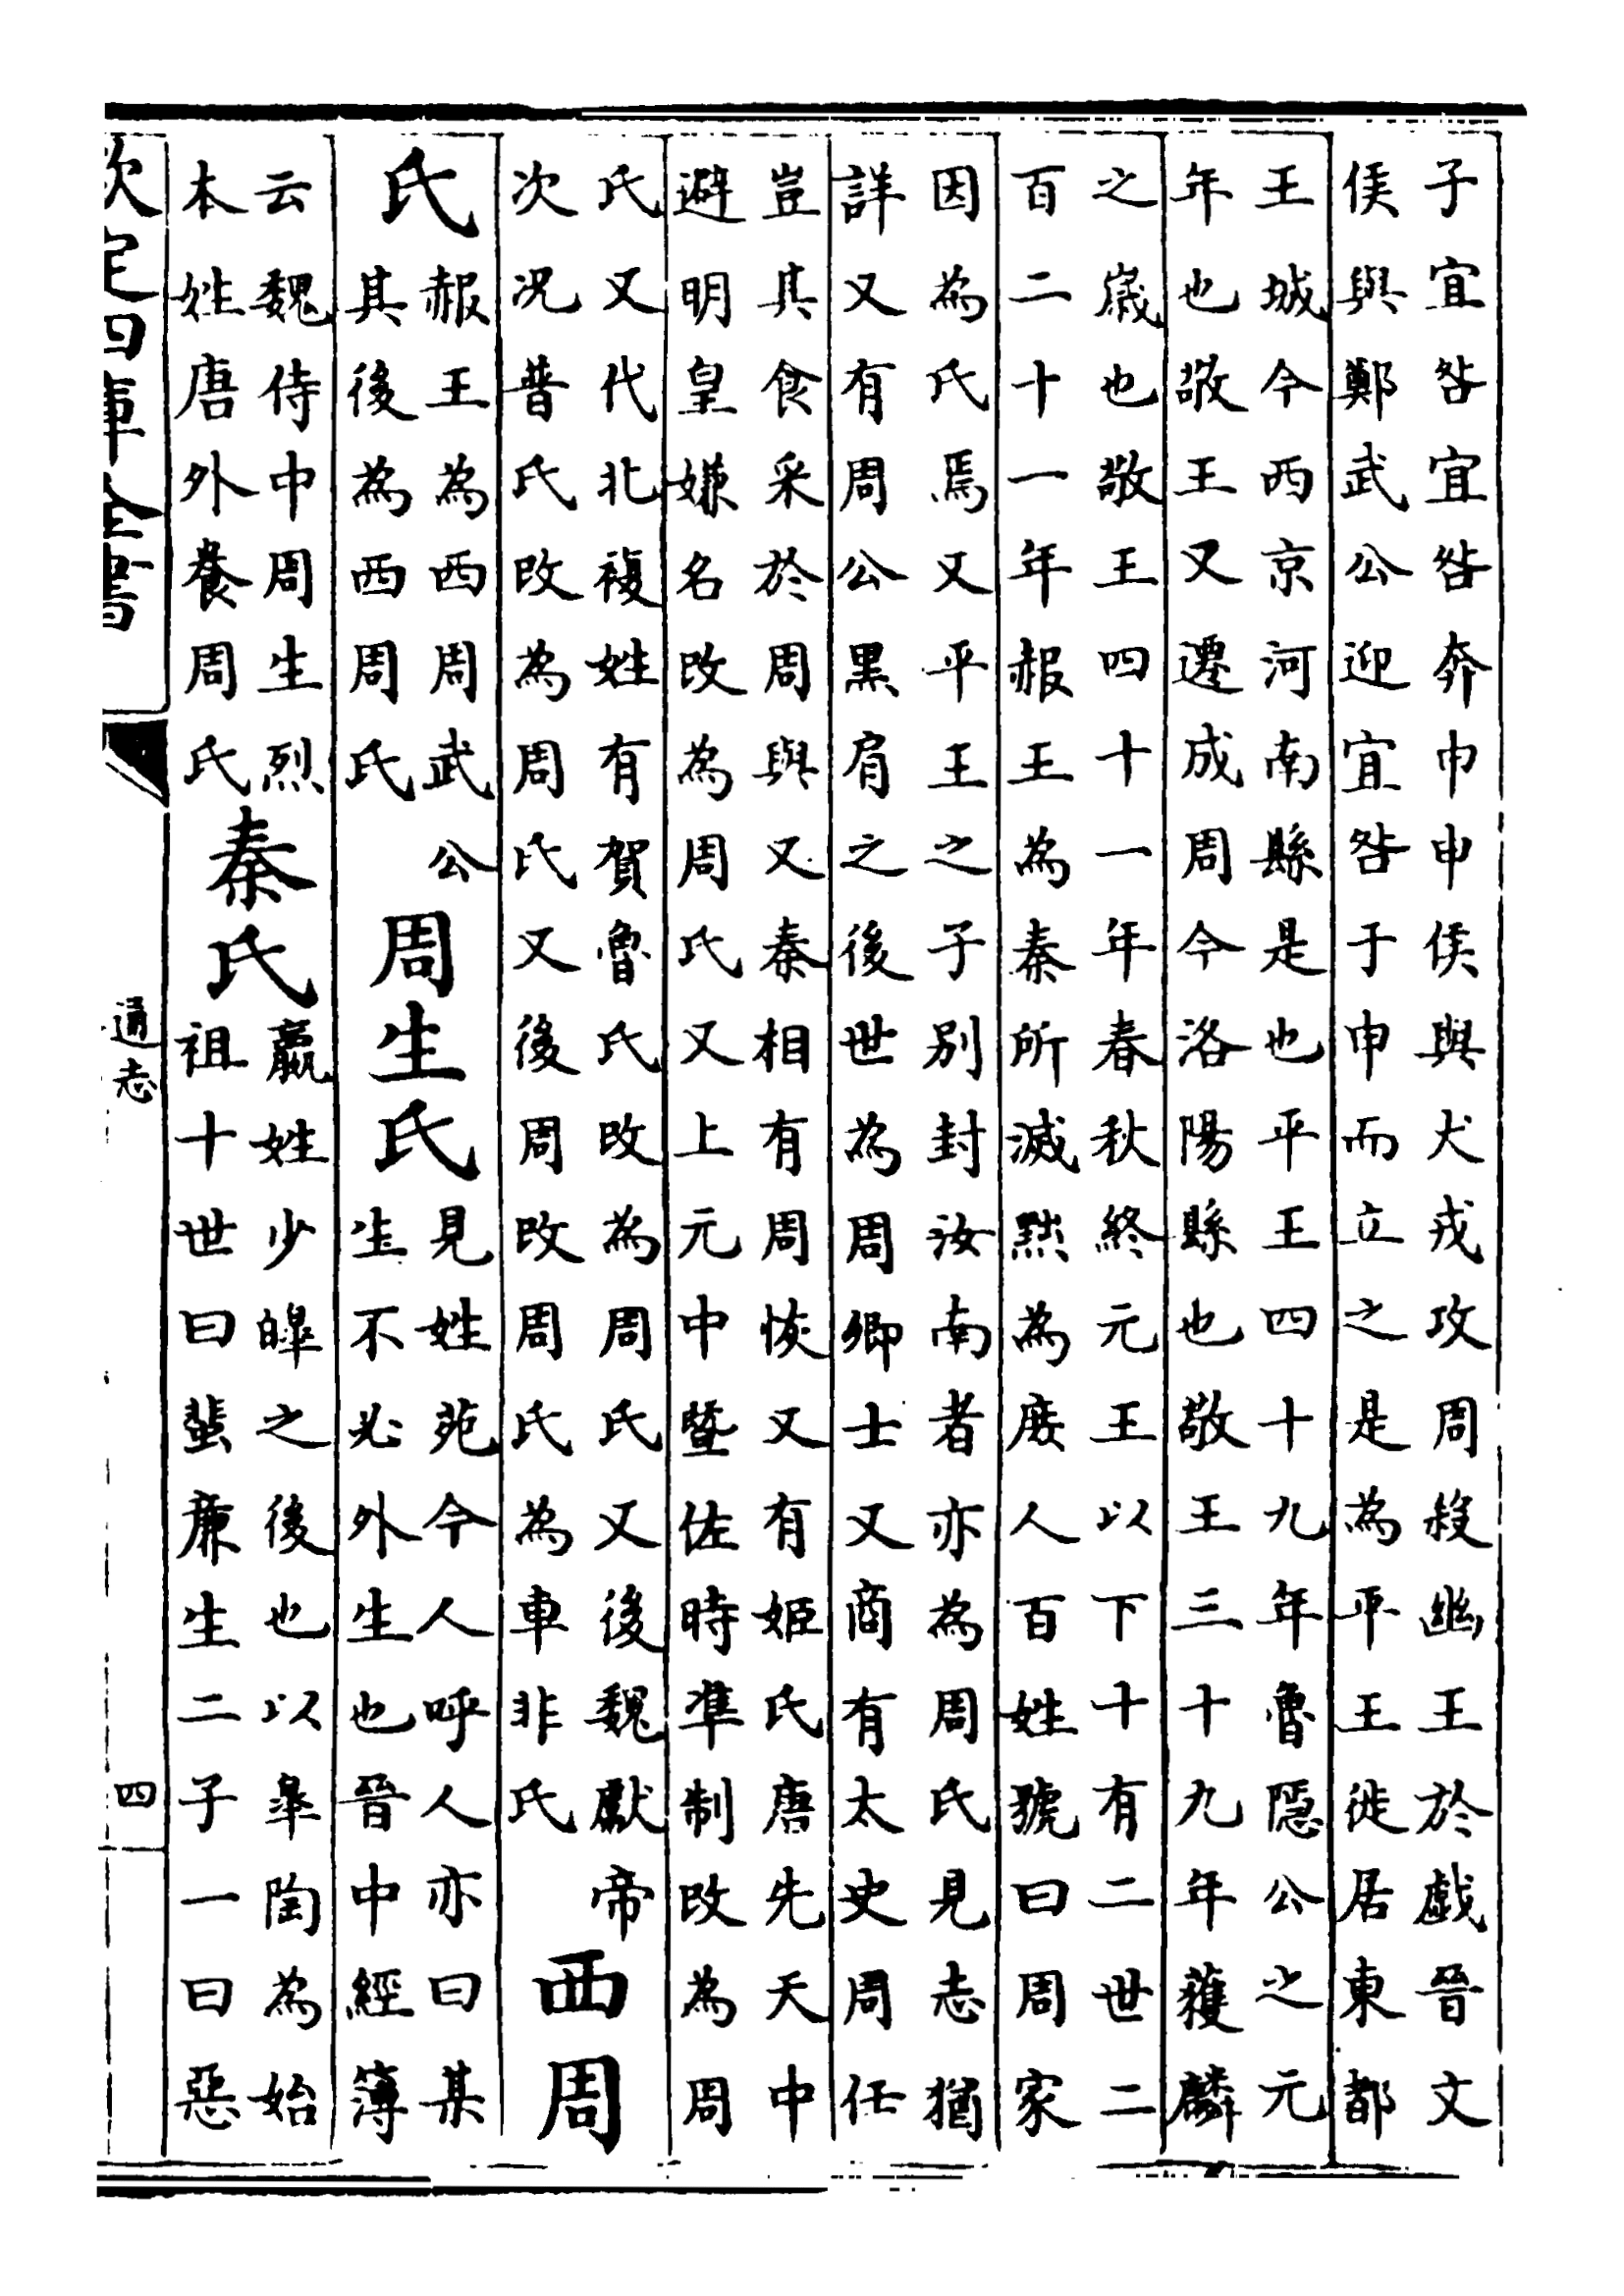 子宜咎宜咎奔申申侯與犬戎攻周殺幽王於戲晉文
侯與鄭武公迎宜咎于申而立之是為平王徙居東都
王城今西京河南縣是也平王四十九年魯隱公之元
年也敬王又遷成周今洛陽縣也敬王三十九年獲麟
之歲也敬王四十一年春秋終元王以下十有二世二
百二十一年赧王為秦所滅黜為庶人百姓號曰周家
因為氏焉又平王之子別封汝南者亦為周氏見志猶
詳又有周公黑肩之後世為周卿士又商有太史周任
豈其食采於周與又秦相有周恢又有姬氏唐先天中
避明皇嫌名改為周氏又上元中暨佐時準制改為周
氏又代北複姓有賀魯氏改為周氏又後魏獻帝
次況普氏改為周氏又後周改周氏為車非氏
西周
氏
赧王為西周武公
其後為西周氏
周生氏
見姓苑今人呼人亦曰某
生不必外生也晉中經簿
云魏侍中周生烈
本姓唐外養周氏
秦氏
嬴姓少皞之後也以皋陶為始
祖十世曰蜚廉生二子一曰惡
欽定四庫全書
通志
四